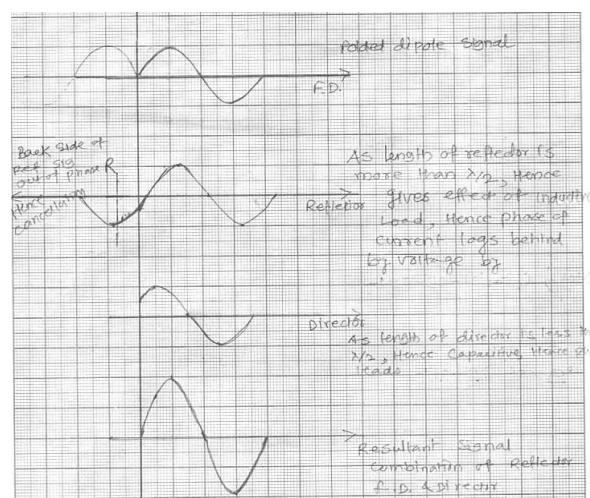 Folded dipole Signal
F.D.
Back side of
Ref. Sig
out of phase R
Hence
cancellation
As length of reflector is
more than λ/2, Hence
gives effect of inductive
Load, Hence phase of
current lags behind
by voltage by
Reflector
Director
As length of director is less
λ/2, Hence Capacitive, Hence
leads
Resultant Signal
Combination of Reflector
F.D. & Director